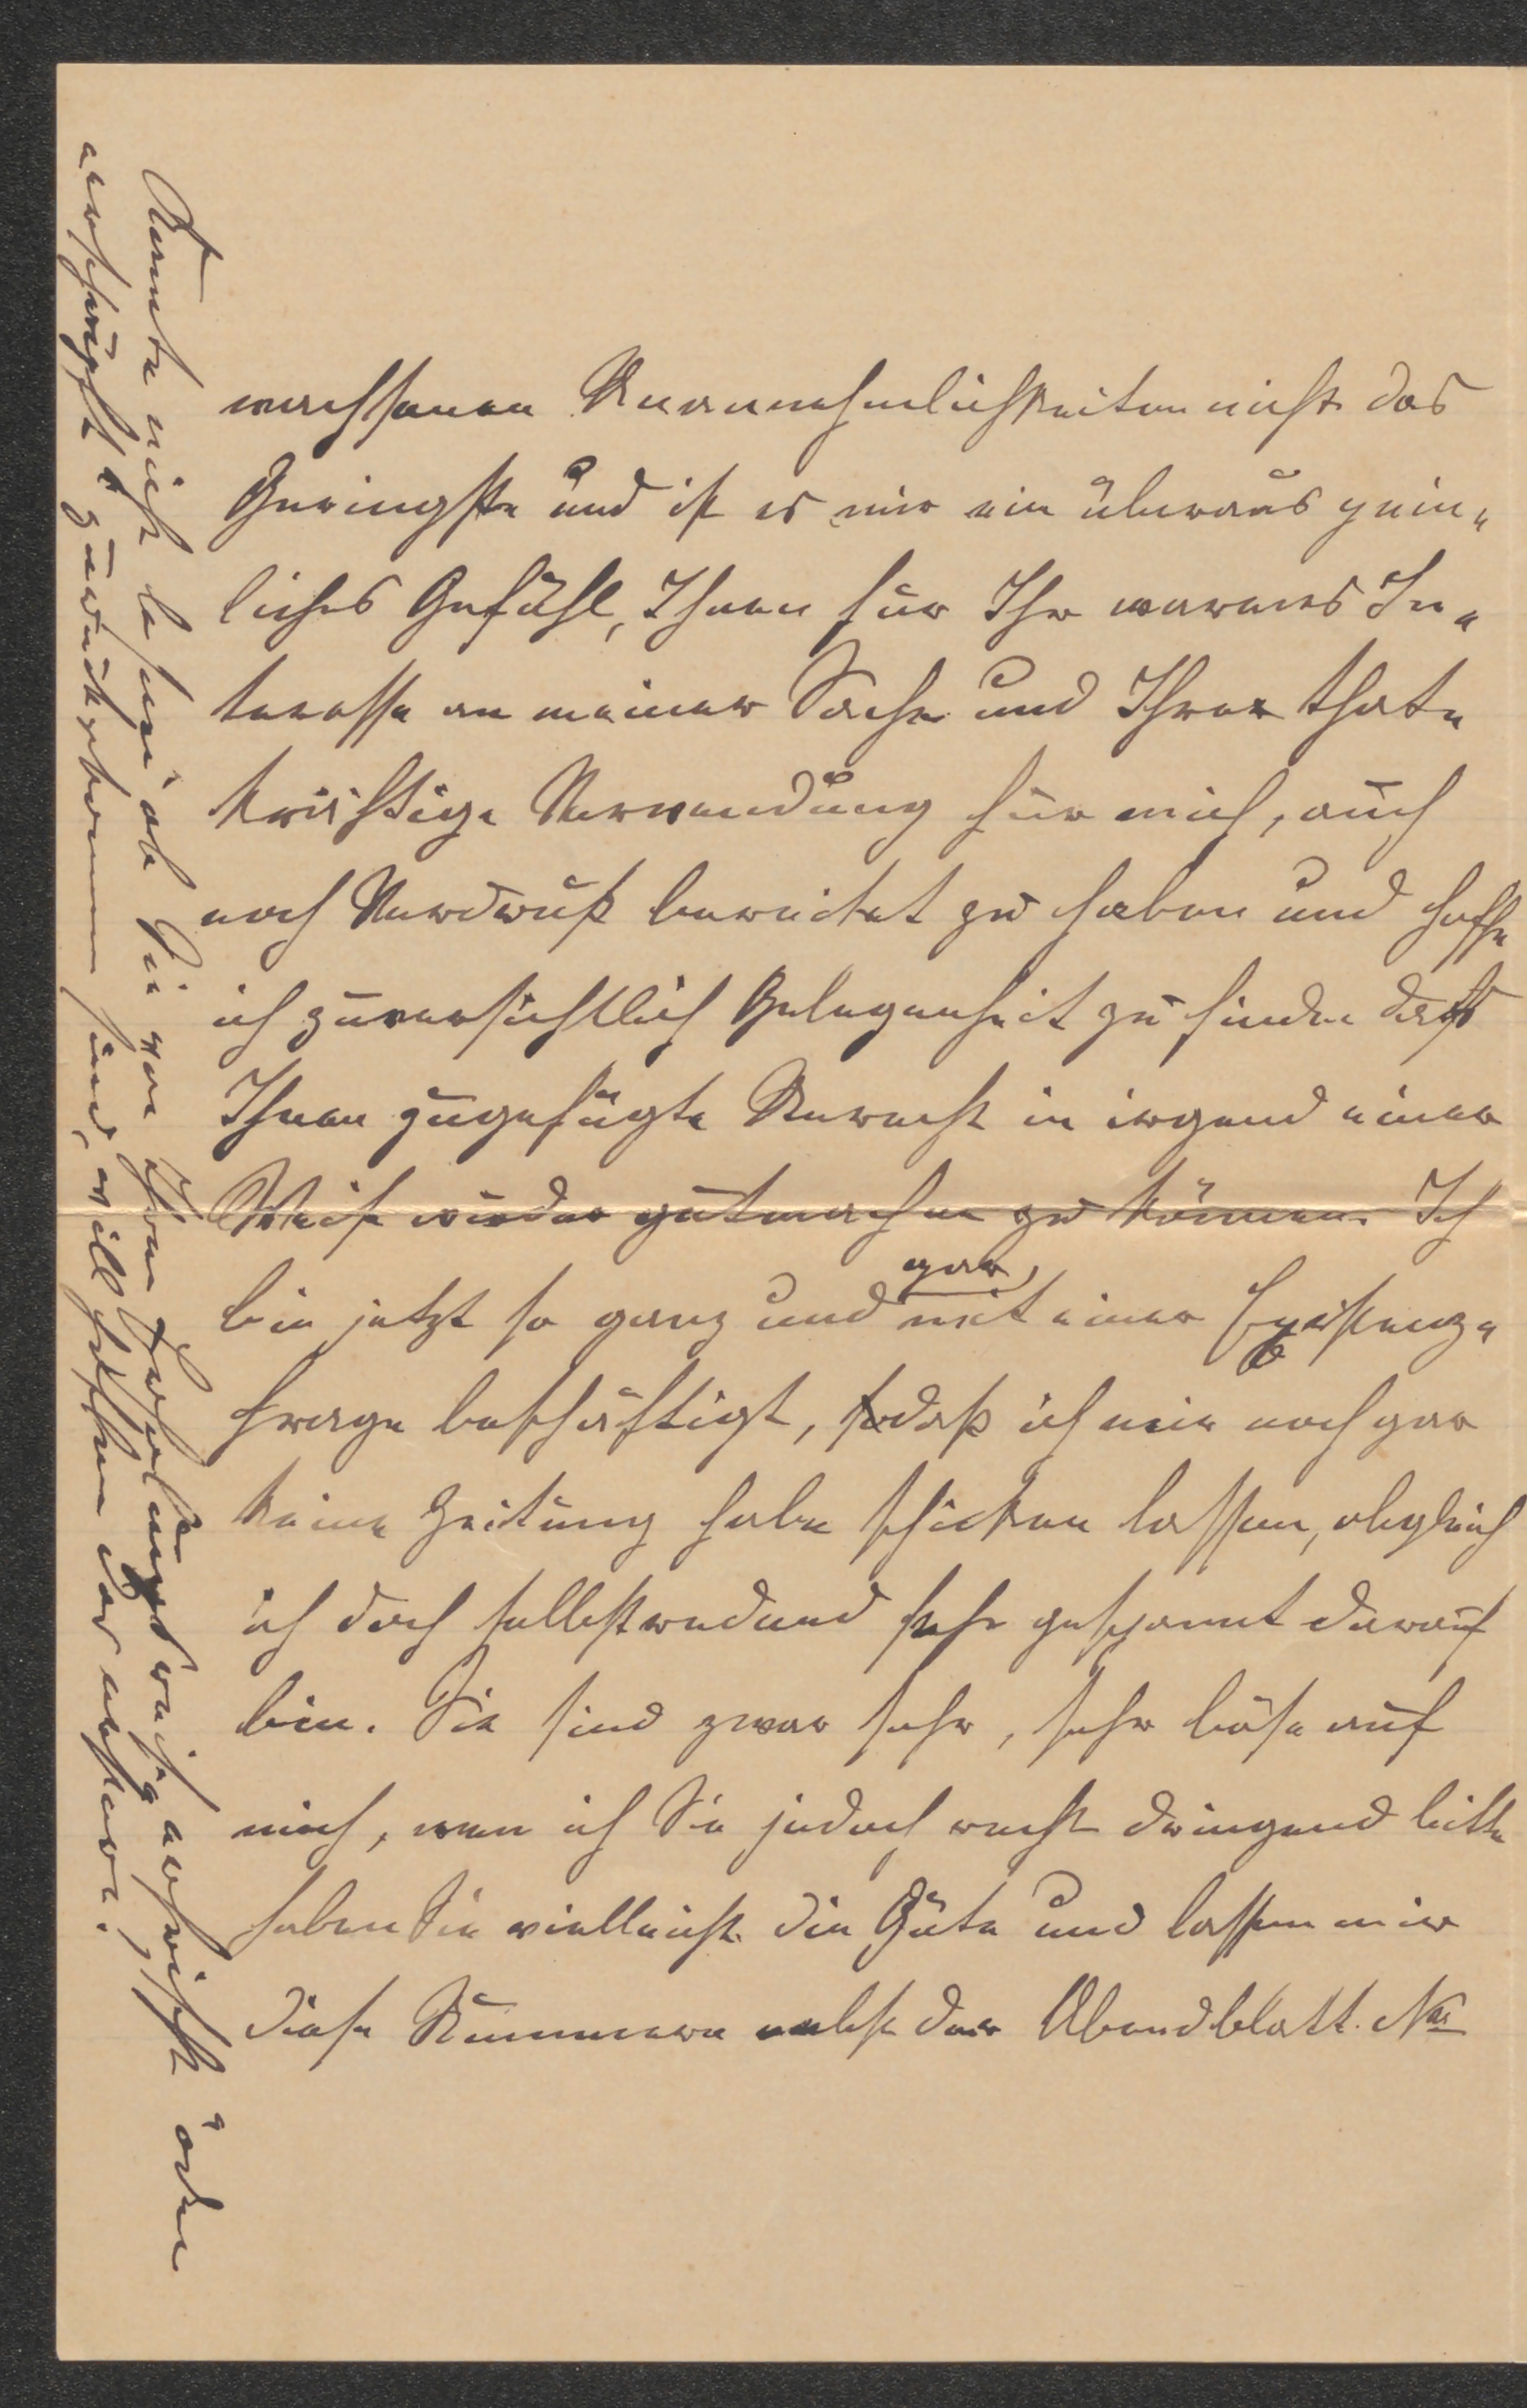 wachsenen Unannehmlichkeiten nicht das
Geringste und ist es mir ein überaus pein-
liches Gefühl, Ihnen für Ihr warmes In-
teresse an meiner Sache und Ihrer that-
kräftige Verwendung für mich, auch
noch Verdruß bereitet zu haben und hoffe
ich zuversichtlich Gelegenheit zu finden das
Ihnen zugefügte Unrecht in irgend einer
Weise wieder gutmachen zu können. Ich
bin jetzt so ganz und gar mit einer Existenz-
frage beschäftigt, sodaß ich mir noch gar
keine Zeitung habe schicken lassen, obgleich
ich doch selbstredend sehr gespannt darauf
bin. Sie sind zwar sehr, sehr böse auf
mich, wenn ich Sie jedoch recht dringend bitte
haben Sie vielleicht die Güte und lassen mir
diese Nummern nebst der Abendblatt. No
konnte nicht sehen ob Sie von Ihrer
erfrischt oder
zurückgekommen sind, will hoffen das erstere.